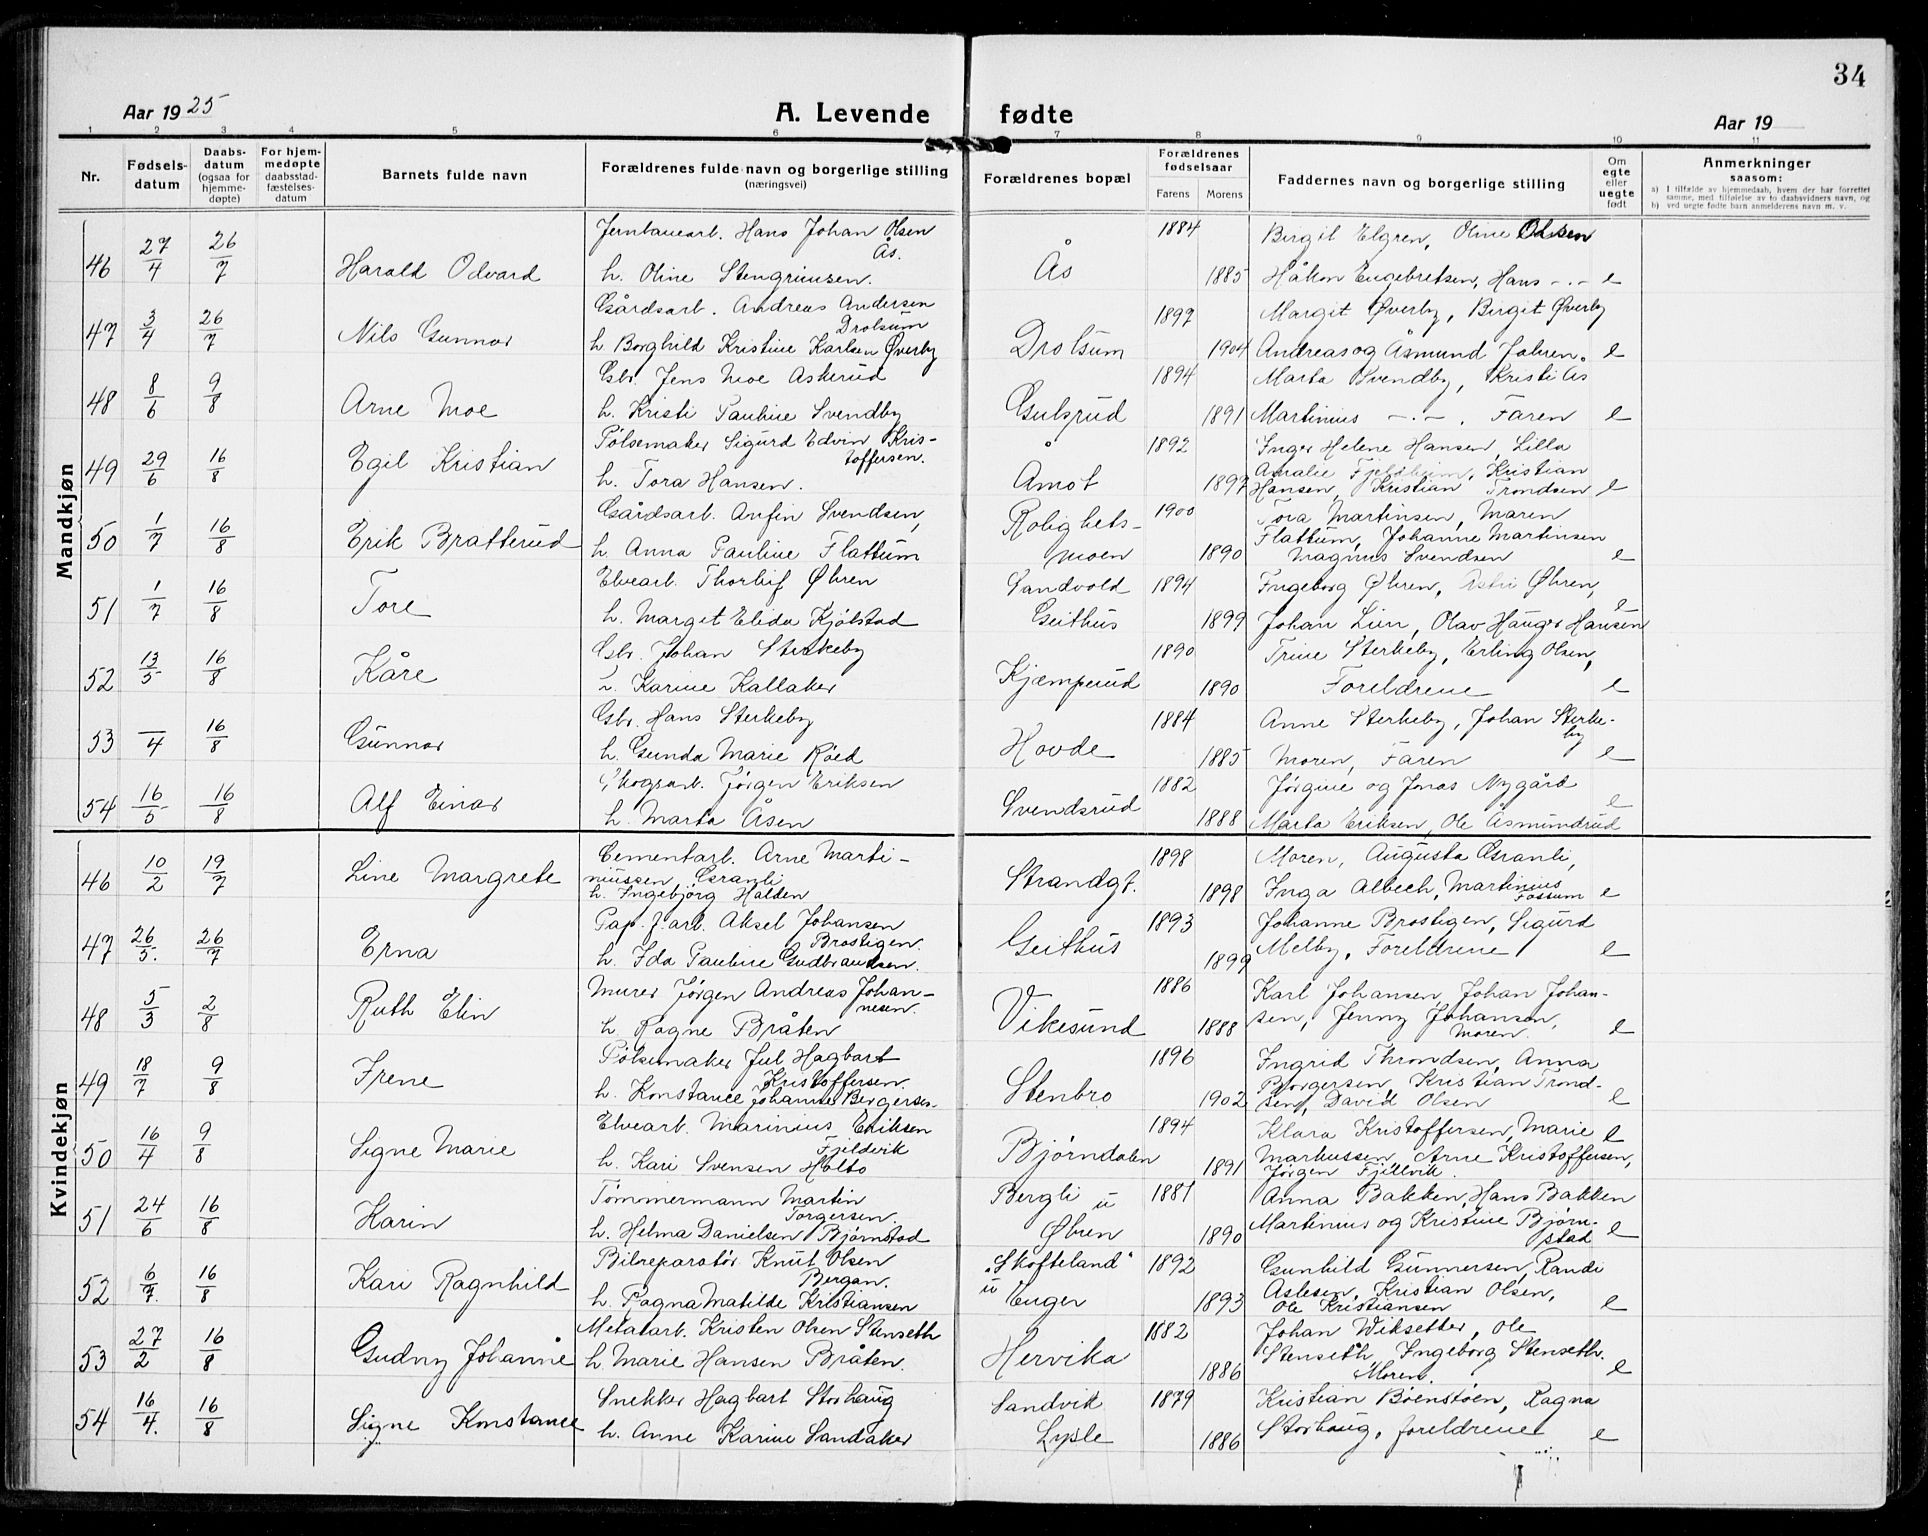 34
Aar 1925
A. Levende
fødte
Aar 19
1 2 3 4 5 6 7 8 9 10 11
Nr.
Fødsels-
datum
Daabs-
datum
(ogsaa for
hjemme-
døpte)
For hjem-
medøpte
daabsstad-
fæstelses-
datum
Barnets fulde navn
Forældrenes fulde navn og borgerlige stilling
(næringsvei)
Forældrenes bopæl
Forældrenes
fødselsaar
Farens Morens
Faddernes navn og borgerlige stilling
Om
egte
eller
uegte
født
Anmerkninger
saasom:
a) I tilfælde av hjemmedaab, hvem der har forrettet
samme, med tilføielse av to daabsvidners navn, og
b) ved uegte fødte barn anmelderens navn m. v.
Mandkjøn
Jernbanearb. Hans Johan Olsen 1884 Birgit Elgren, Oline Olsen
Ås.
46 27/4 26/7 Harald Odvard h. Oline Stengrimsen. Ås 1885 Håkon Engebretsen, Hans -"- e
Gårdsarb. Andreas Andersen 1897 Margit Øverby, Birgit Øverby
Drolsum
47 3/4 26/7 Nils Gunnar h Borghild Kristine Karlsen Øverby Drolsum 1904 Andreas og Åsmund Johren. e
Gbr. Jens Moe Askerud 1894 Marta Svendby, Kristi Ås
48 8/6 9/8 Arne Moe h. Kristi Pauline Svendby Gulsrud 1891 Martinius -"-. Faren e
Pølsemaker Sigurd Edvin Kris- 1892 Inger Helene Hansen, Lilla
toffersen. Amalie Fjeldheim, Kristian
49 29/6 16/8 Egil Kristian h. Tora Hansen. Åmot 1897 Hansen, Kristian Trondsen e
Gårdsarb. Anfin Svendsen, Rolighets- 1900 Tora Martinsen, Maren
50 1/7 16/8 Erik Bratterud h Anna Pauline Flattum moen 1890 Flattum, Johanne Martinsen
Magnus Svendsen e
Elvearb. Thorleif Øhren Sandvold 1894 Ingeborg Øhren, Astri Øhren,
51 1/7 16/8 Tore h. Margit Elida Kjølstad Geithus 1899 Johan Lien, Olav Hauger Hansen e
Gbr. Johan Sterkeby 1890 Trine Sterkeby, Erling Olsen,
52 13/5 16/8 Kåre h. Karine Kallaker Kjæmperud 1890 Foreldrene e
Gbr. Hans Sterkeby 1884 Anne Sterkeby, Johan Sterke-
by
53 —/4 16/8 Gunnar h. Gunda Marie Røed Hovde 1885 Moren, Faren e
Skogsarb. Jørgen Eriksen 1882 Jørgine og Jonas Nygård
54 16/5 16/8 Alf Einar h. Marta Åsen Svendsrud 1888 Marta Eriksen, Ole Åsmundrud e
Kvindekjøn
Cementarb. Arne Marti- 1898 Moren, Augusta Granli,
46 10/2 19/7 Line Margrete niussen Granli Strandgt. 1898 Inga Albech, Martinius
h. Ingebjørg Halden Fossum e
Pap. f. arb. Aksel Johansen 1893 Johanne Brostigen, Sigurd
Brostigen.
47 26/5. 26/7 Erna h. Ida Pauline Gudbrandsen. Geithus 1899 Melby, Foreldrene e
Murer Jørgen Andreas Johan- 1886 Karl Johansen, Johan Johan-
nesen.
48 5/3 2/8 Ruth Elin h. Ragne Bråten Vikesund 1888 sen, Jenny Johansen,
Moren. e
Pølsemaker Jul Hagbart 1896 Ingrid Throndsen, Anna
Kristoffersen.
49 18/7 9/8 Irene h. Konstance Johanne Bergersen. Stenbro 1902 Borgersen, Kristian Trond-
sen, David Olsen e
Elvearb. Marinius Eriksen 1894 Klara Kristoffersen, Marie e
Fjeldvik
50 16/4 9/8 Signe Marie h. Kari Svensen Holto Bjørndalen 1891 Markussen, Arne Kristoffersen,
Jørgen Fjellvik.
Tømmermann Martin Bergli u 1881 Anna Bakken, Hans Bakken
Torgersen.
51 24/6 16/8 Karin h. Helma Danielsen Bjørnstad Øhren 1890 Martinius og Kristine Bjørn-
stad e
Bilreparatør Knut Olsen "Skofteland" 1892 Gunhild Gunnersen, Randi
Bergan. u
52 6/7. 16/8 Kari Ragnhild h. Ragna Matilde Kristiansen Enger 1893 Aslesen, Kristian Olsen,
Ole Kristiansen e
Metalarb. Kristen Olsen Stenseth 1882 Johan Wiksetter, Ole
53 27/2 16/8 Gudny Johanne h. Marie Hansen Bråten. Hervika 1886 Stenseth, Ingeborg Stenseth.
Moren. e
Snekker Hagbart Storhaug Sandvik 1879 Kristian Bøenstøen, Ragna
54 16/4. 16/8 Signe Konstance h. Anne Karine Sandaker Lysle 1886 Storhaug, foreldrene e